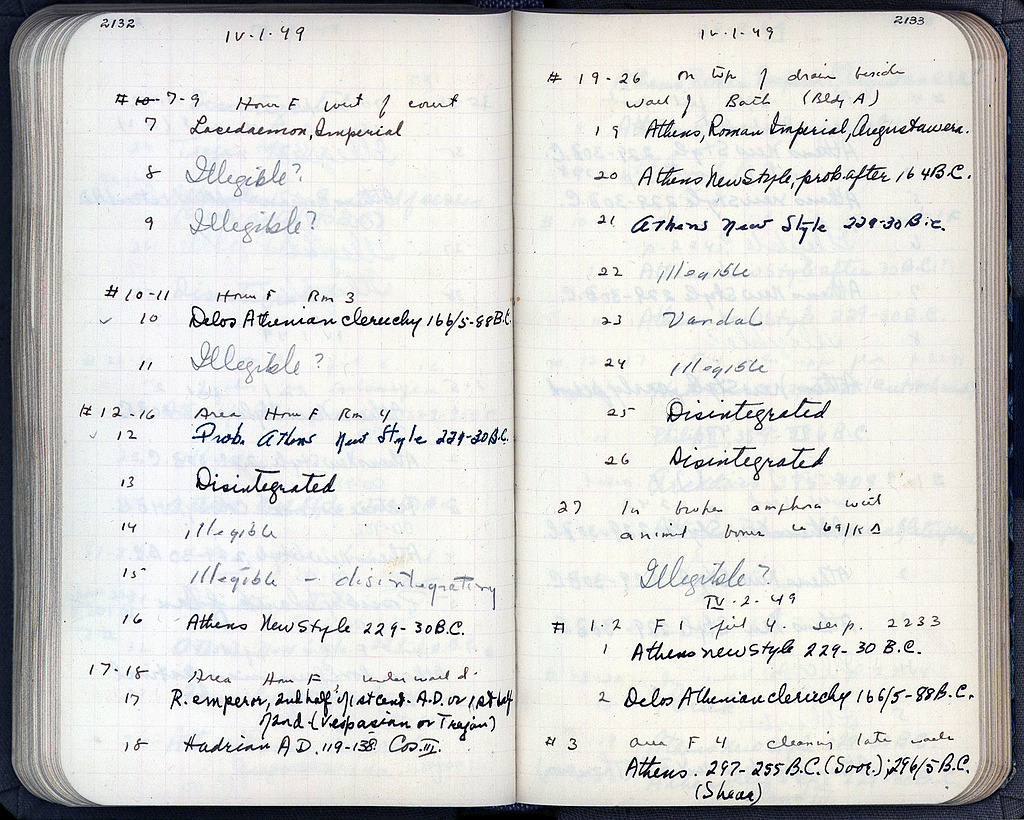 2132
IV.1.49
# 7-9 House F west of court
7 Lacedaemon, Imperial
8 Illegible?
9 Illegible?
#10-11 House F Rm 3
✓ 10 Delos Athenian cleruchy 166/5-88 B.C.
11 Illegible?
#12-16 Area House F Rm 4
✓ 12 Prob. Athens New Style 229-30 B.C.
13 Disintegrated
14 illegible
15 Illegible - disintegrating
16 Athens New Style 229-30 B.C.
17-18 Area House F under wall d.
17 R. emperor, 2nd half of 1st cent. A.D. or 1st half
of 2nd - (Vespasian or Trajan)
18 Hadrian A.D. 119-138 Cos. III.
2133
IV.1.49
# 19-26 on top of drain beside
wall of Bath (Bldg A)
19 Athens, Roman Imperial, Augustan era.
20 Athens New Style, prob. after 164 B.C.
21 Athens New Style 229-30 B.C.
22 Illegible
23 Vandal
24 illegible
25 Disintegrated
26 Disintegrated
27 In broken amphora with
animal bones 69/ΚΔ
Illegible?
IV.2.49
# 1-2 F 1 2233
1 Athens new style 229-30 B.C.
2 Delos Athenian cleruchy 166/5-88 B.C.
# 3 area F 4 cleaning late walls
Athens. 297-255 B.C. (Svor.); 296/5 B.C.
(Shear)